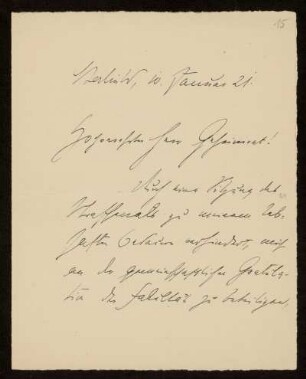 15
10. Januar 21.
Hochverehrter Herr Geheimrat!
Durch eine Sitzung des
Strafsenats zu meinem leb-
haften Bedauern verhindert, mich
an der gemeinschaftlichen Gratula-
tion der Fakultät zu beteiligen,